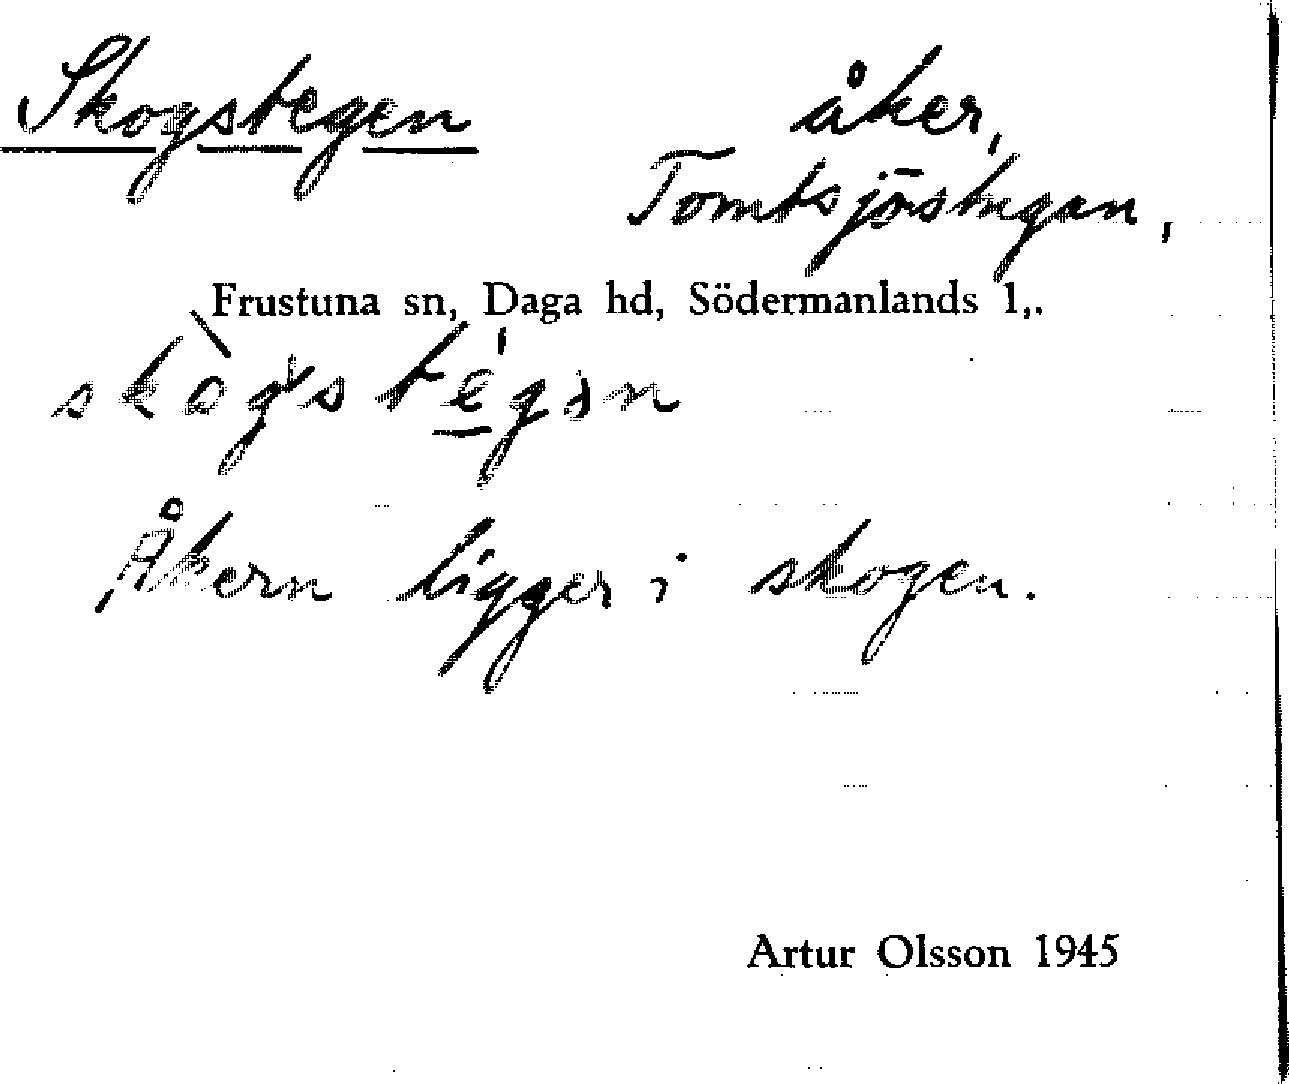 Skogstegen
åker,
Tomtsjöstugan,
Frustuna sn, Daga hd, Södermanlands l,.
skògstégən
Åkern ligger i skogen.
Artur Olsson 1945